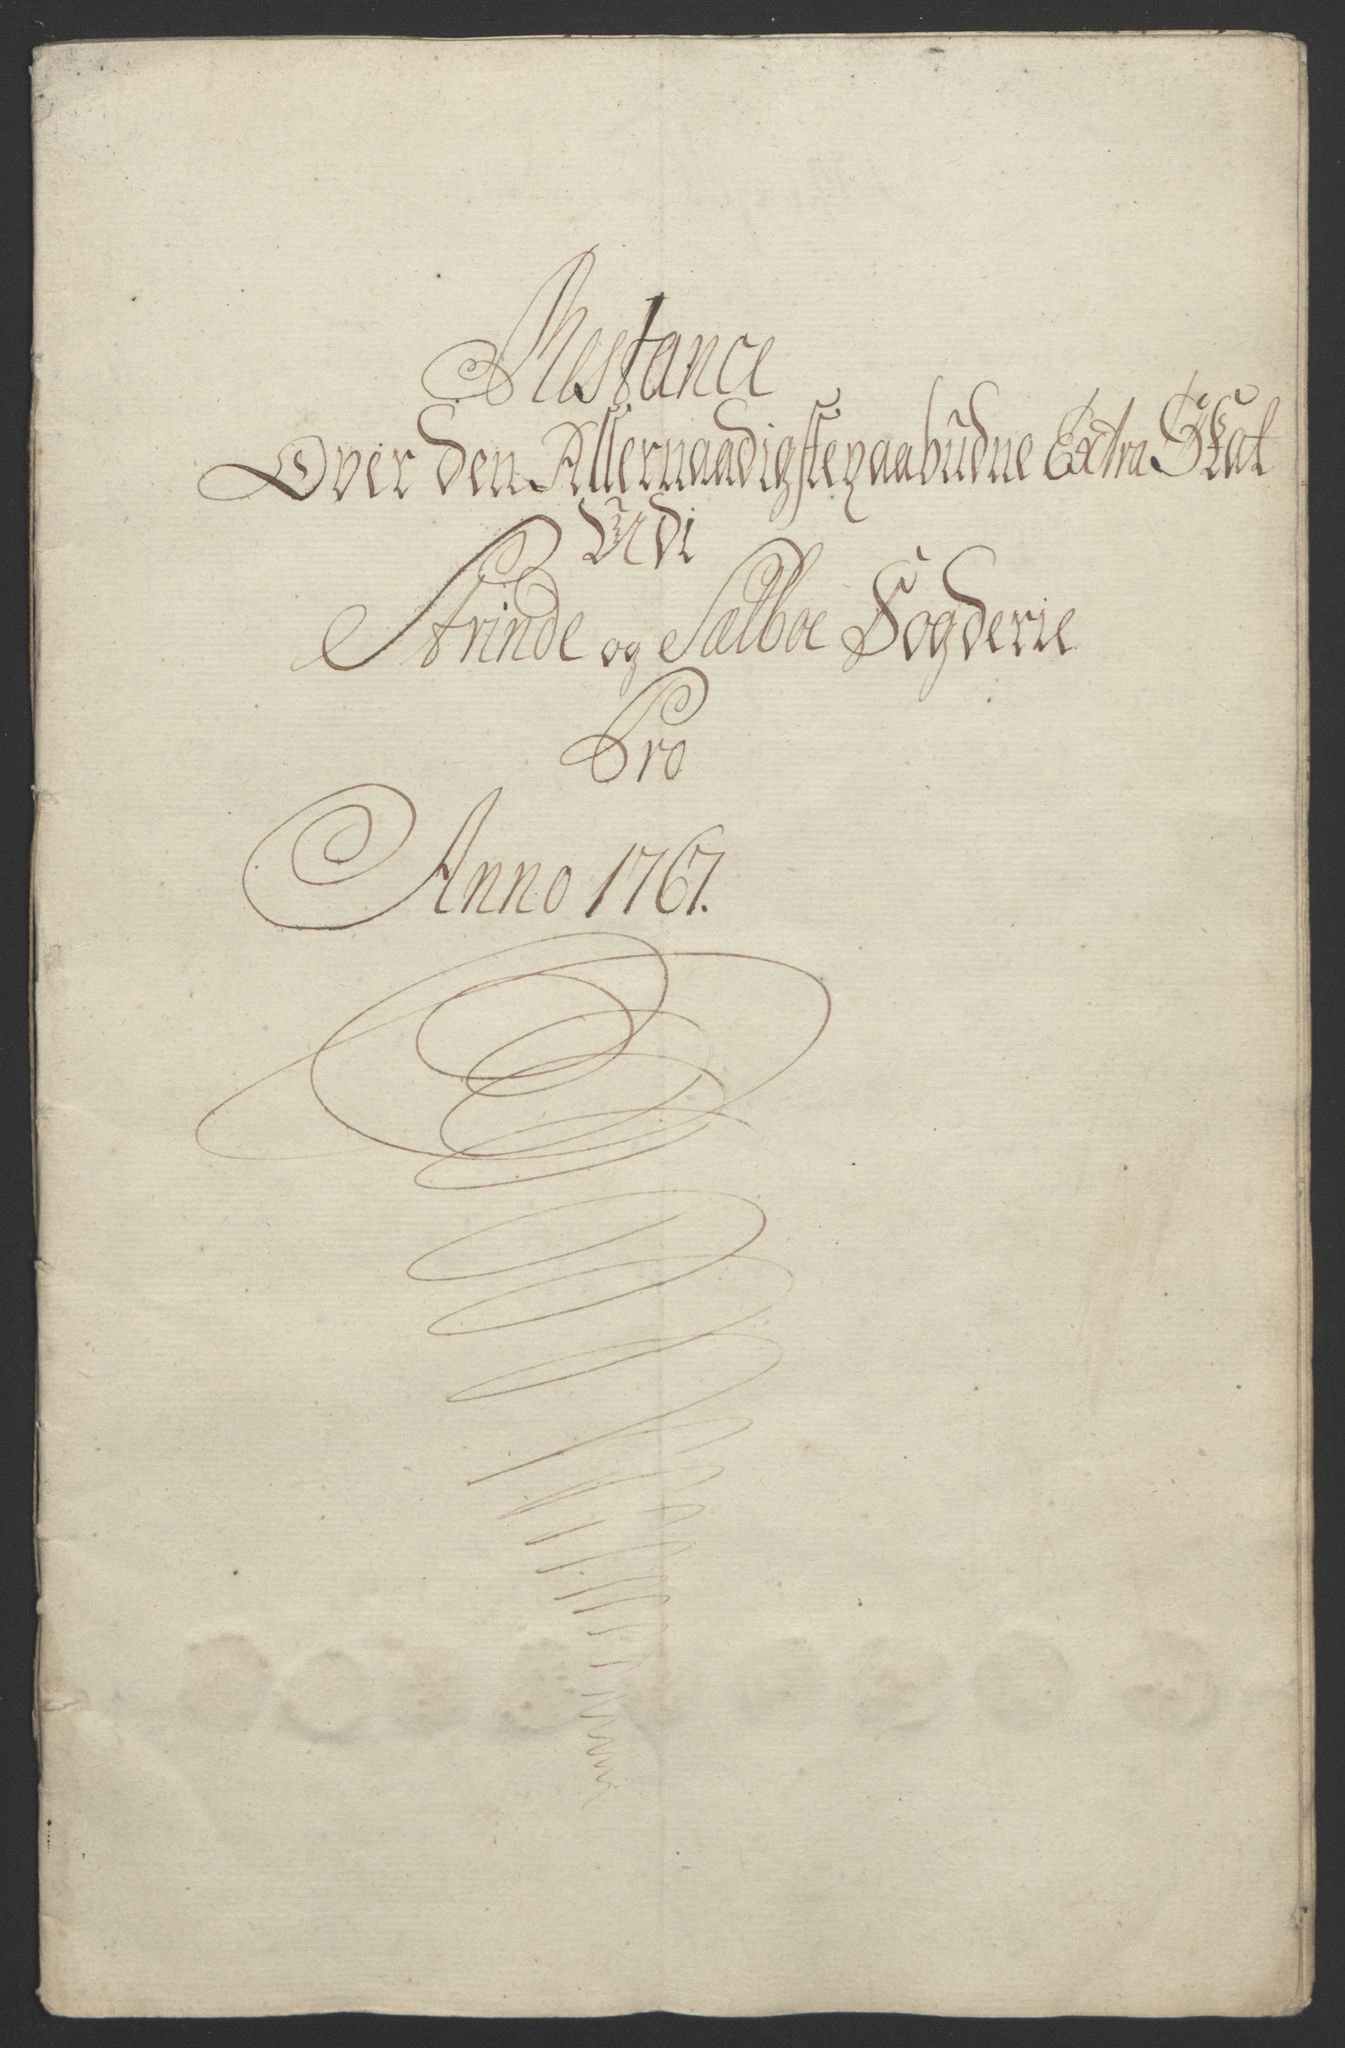 Restance
Over den Allernaadigst paabudne Extra Skat
Udi
Strinde og Sælboe Fogderie
Pro
Anno 1767.